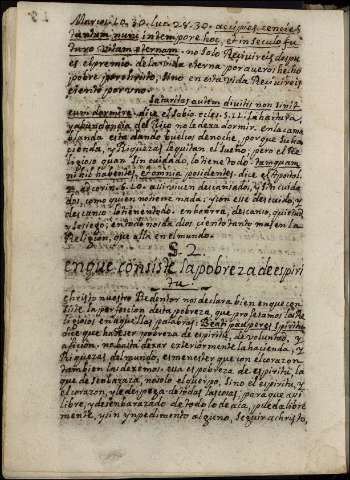 Marcos. 10. 30. Luc. 28. 30. accipiet centies
tantum nunc in tempore hoc, et in seculo fu
turo vitam eternam. no solo Recivireis despu
es el premio de la vida eterna por averos hecho
pobre por christo, sino en esta vida Recivireis
ciento por uno.
Saturitas autem divitis non sinit
eum dormire. dice el sabio ecles. 5. 11. la hartura,
y abundancia del Rico no le dexa dormir. en la cama
blanda esta dando buelcos de noche, porque su ha
cienda, y Riquezas le quitan el sueño; pero el Re
ligioso quan sin cuidado, lo tiene todo: tamquam
nihil habentes, et omnia posidentes. dice el Apostol
2. ad corin. 6. 10. alli viven descansados, y sin cuida
dos, como quien no tiene nada; y con ese descuido, y
descanso lo tienen todo. en honrra, descanso, quietud
y sosiego; en todo nos da dios ciento tanto mas en la
Religion, que alla en el mundo.
§. 2
en que consiste la pobreza de espiri
tu.
Christo nuestro Redentor nos declara bien en que con
siste la perfeccion desta pobreza, que profesamos los Re
ligiosos en aquellas palabras: Beati pauperes spiritu
dice que ha de ser pobreza de espiritu, de voluntad, y
aficion. no basta dexar exteriormente la hacienda, y
Riquezas del mundo, es menester que con el corazon
tambien las dexemos. esa es pobreza de espiritu, la
que desembaraza, no solo el cuerpo, sino el espiritu, y
el corazon, y le despega de todas las cosas, para que asi
libre, y desembarazado de todo lo de aca, pueda libre
mente, y sin ynpedimento alguno, seguir a christo,